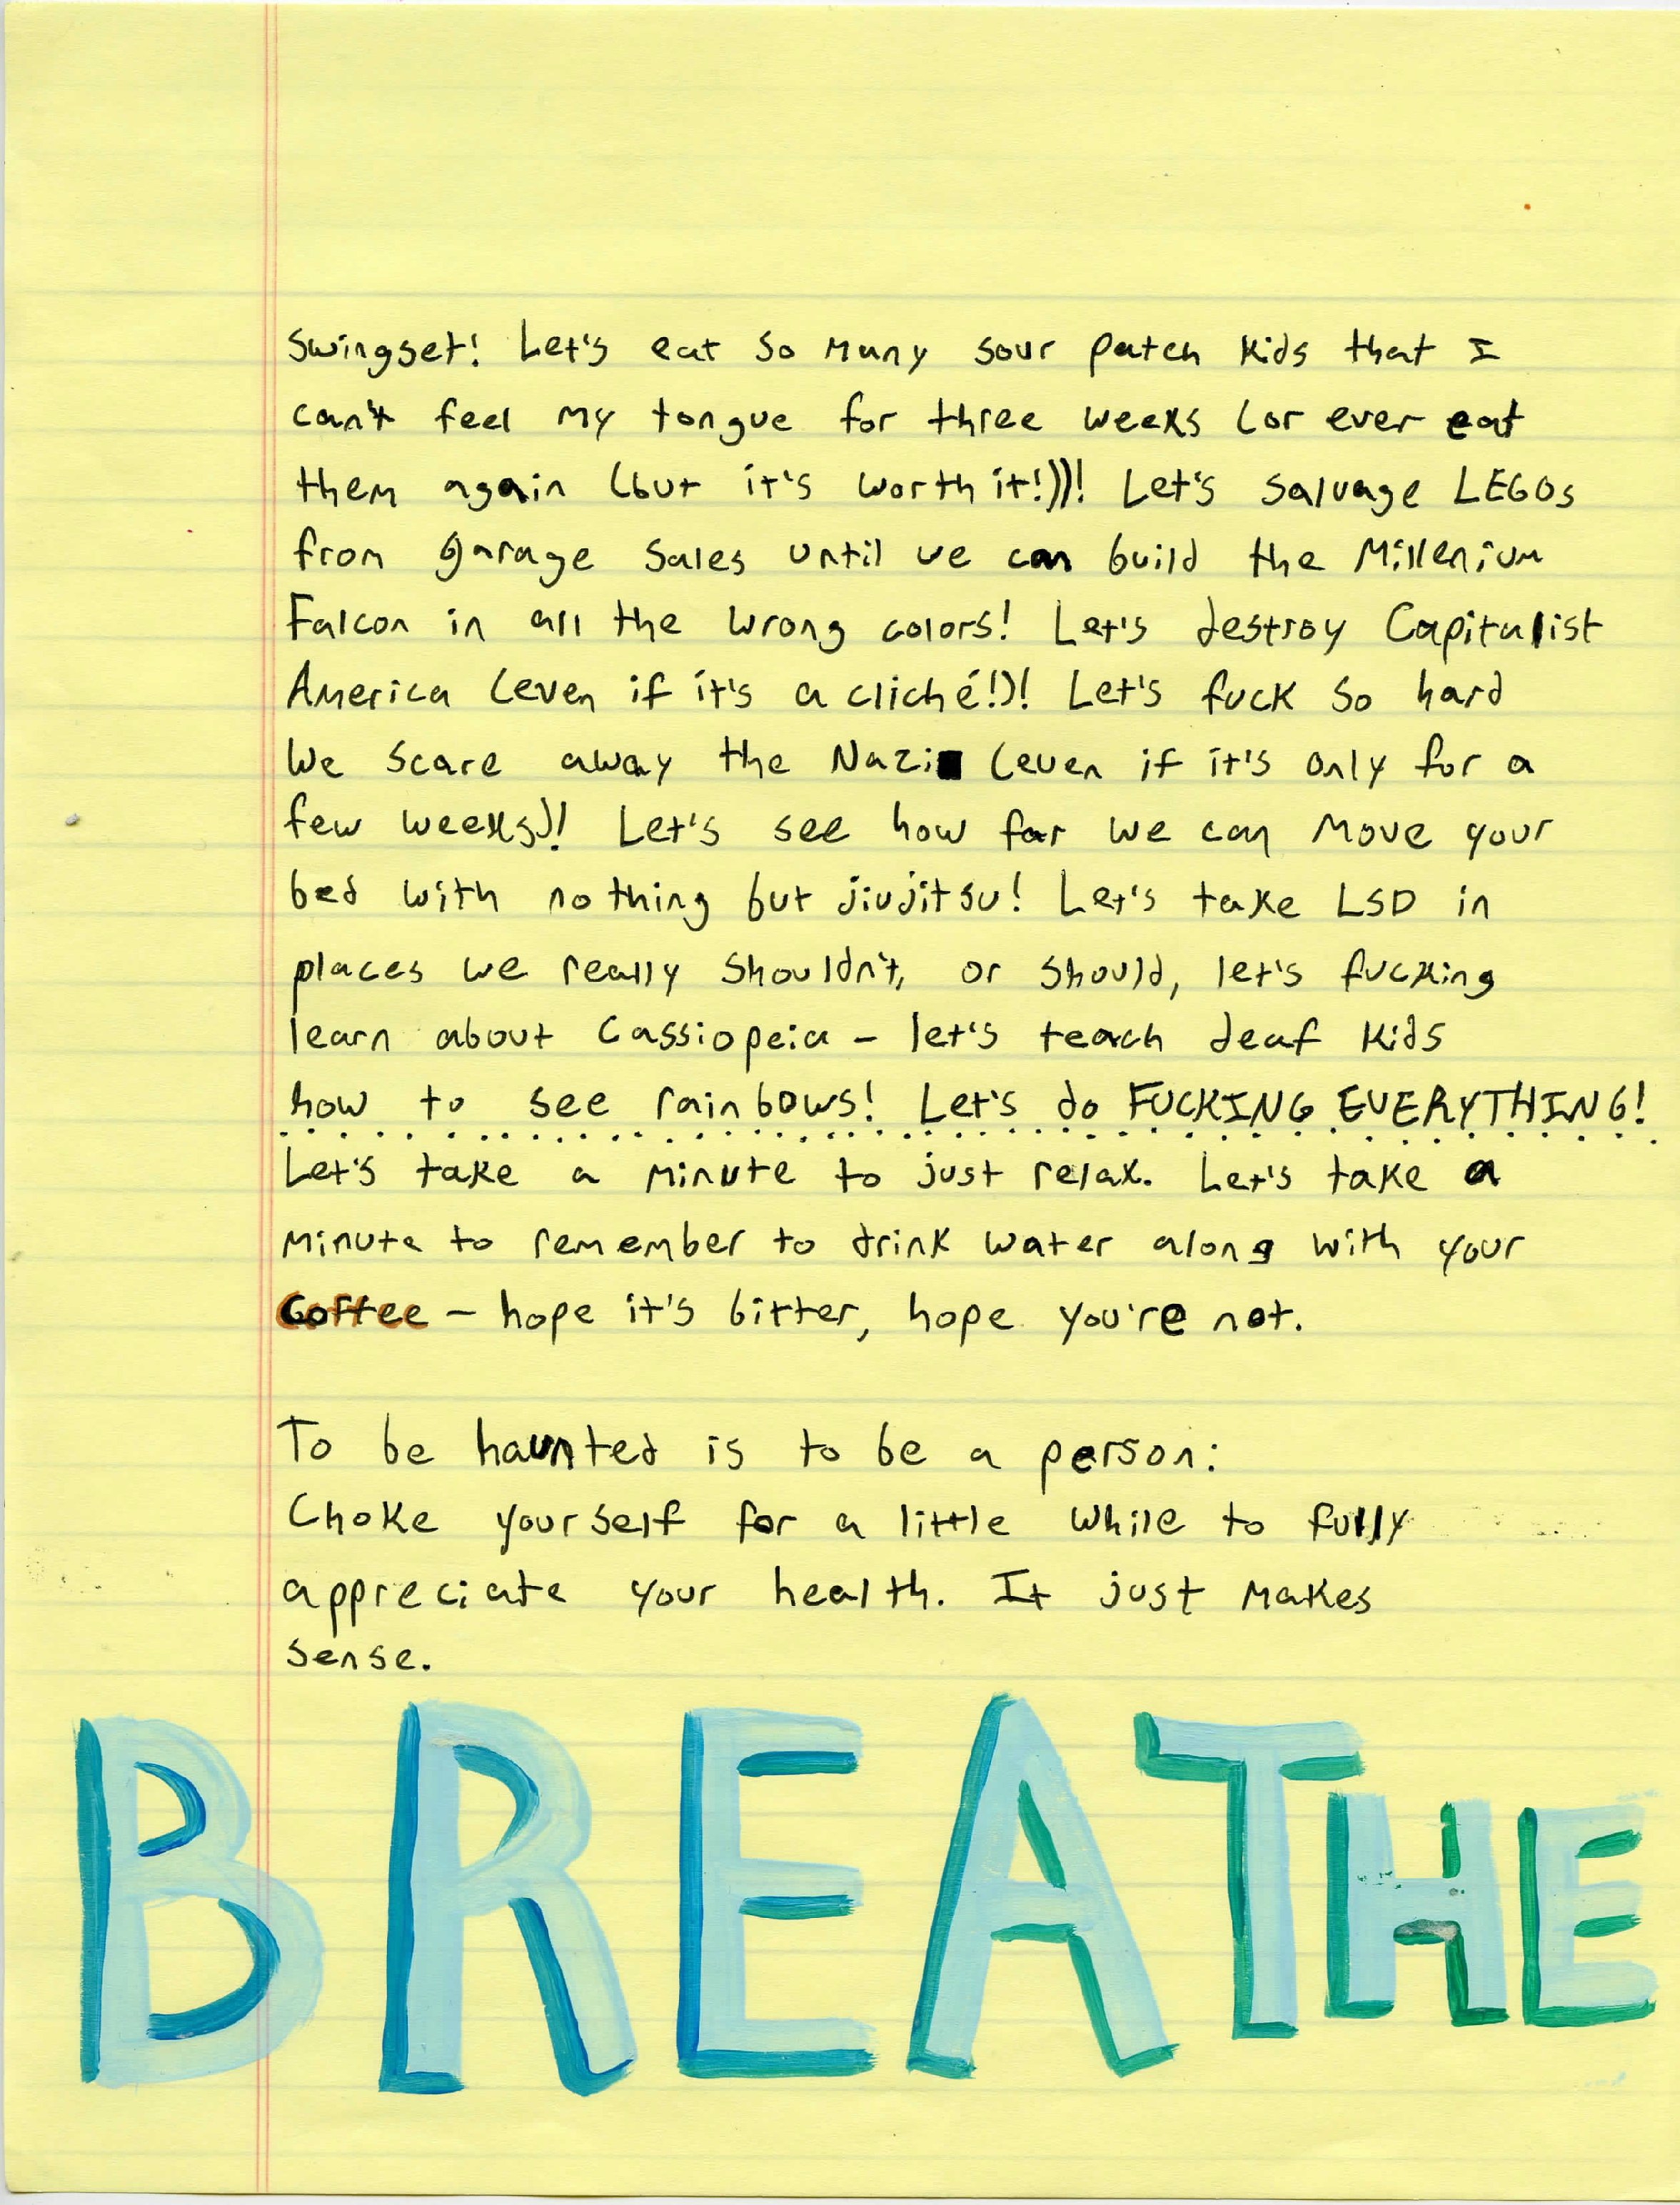 swingset! Let's eat so many sour patch kids that I
can't feel my tongue for three weeks (or ever eat
them again (but it's worth it!))! Let's salvage LEGOs
from garage sales until we can build the Millenium
Falcon in all the wrong colors! Let's destroy Capitalist
America (even if it's a cliché!)! Let's fuck so hard
we scare away the Nazi (even if it's only for a
few weeks)! Let's see how far we can move your
bed with nothing but jiujitsu! Let's take LSD in
places we really shouldn't, or should, let's fucking
learn about Cassiopeia - let's teach deaf kids
how to see rainbows! Let's do FUCKING EVERYTHING!
Let's take a minute to just relax. Let's take a
minute to remember to drink water along with your
Coffee - hope it's bitter, hope you're not.
To be haunted is to be a person:
Choke yourself for a little while to fully
appreciate your health. It just makes
sense.
BREATHE